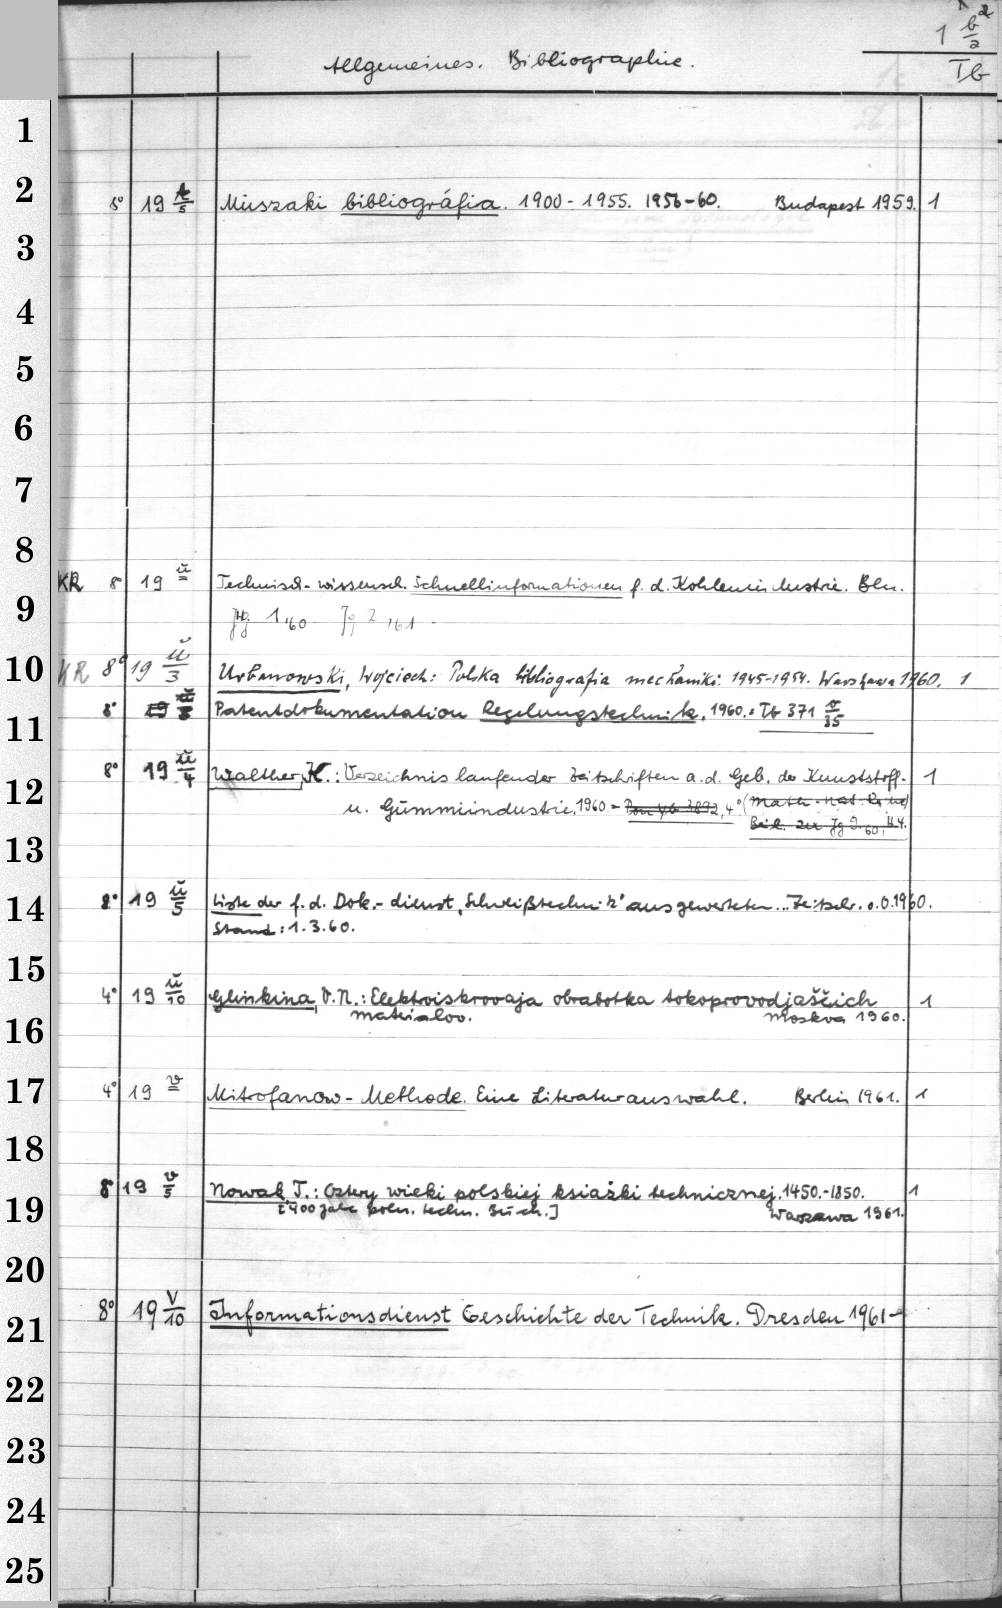 1 b/a 2
Allgemeines. Bibliographie. Tb
1
2 8° 19 t/5 Müszaki bibliográfia. 1900-1955. 1956-60. Budapest 1959. 1
3
4
5
6
7
8
KR 8° 19 ŭ Technisch-wissensch. Schnellinformationen f. d. Kohlenindustrie. Bln.
9 Jg. 1,60 Jg 2,61-
10 KR 8° 19 ŭ/3 Urbanowski, Wojciech: Polska bibliografia mechaniki. 1945-1954. Warszawa 1960. 1
11 8° 19 Patentdokumentation Regelungstechnik. 1960.: Tb 371 v/35
8° 19 ŭ/4 Walther, K.: Verzeichnis laufender Zeitschriften a. d. Geb. der Kunststoff- 1
12 u. Gummiindustrie. 1960 = 4° (Math.-nat. Reihe)
Beil. zu Jg 9.60, H4.
13
14 8° 19 ŭ/5 Liste der f. d. Dok.-dienst „Schweißtechnik" ausgewerteten ... Zeitschr. o.O. 1960.
Stand: 1.3.60.
15
4° 19 ŭ/10 Glinkina, V. N.: Elektroiskrovaja obrabotka tokoprovodjaščich 1
16 materialov. Moskva 1960.
17 4° 19 v Mitrofanow-Methode. Eine Literaturauswahl. Berlin 1961. 1
18
8° 19 v/5 Nowak, T.: Cztery wieki polskiej książki technicznej. 1450.-1850. 1
19 [400 Jahre poln. techn. Büch.] Warszawa 1961.
20
21 8° 19 V/10 Informationsdienst Geschichte der Technik. Dresden 1961-
22
23
24
25